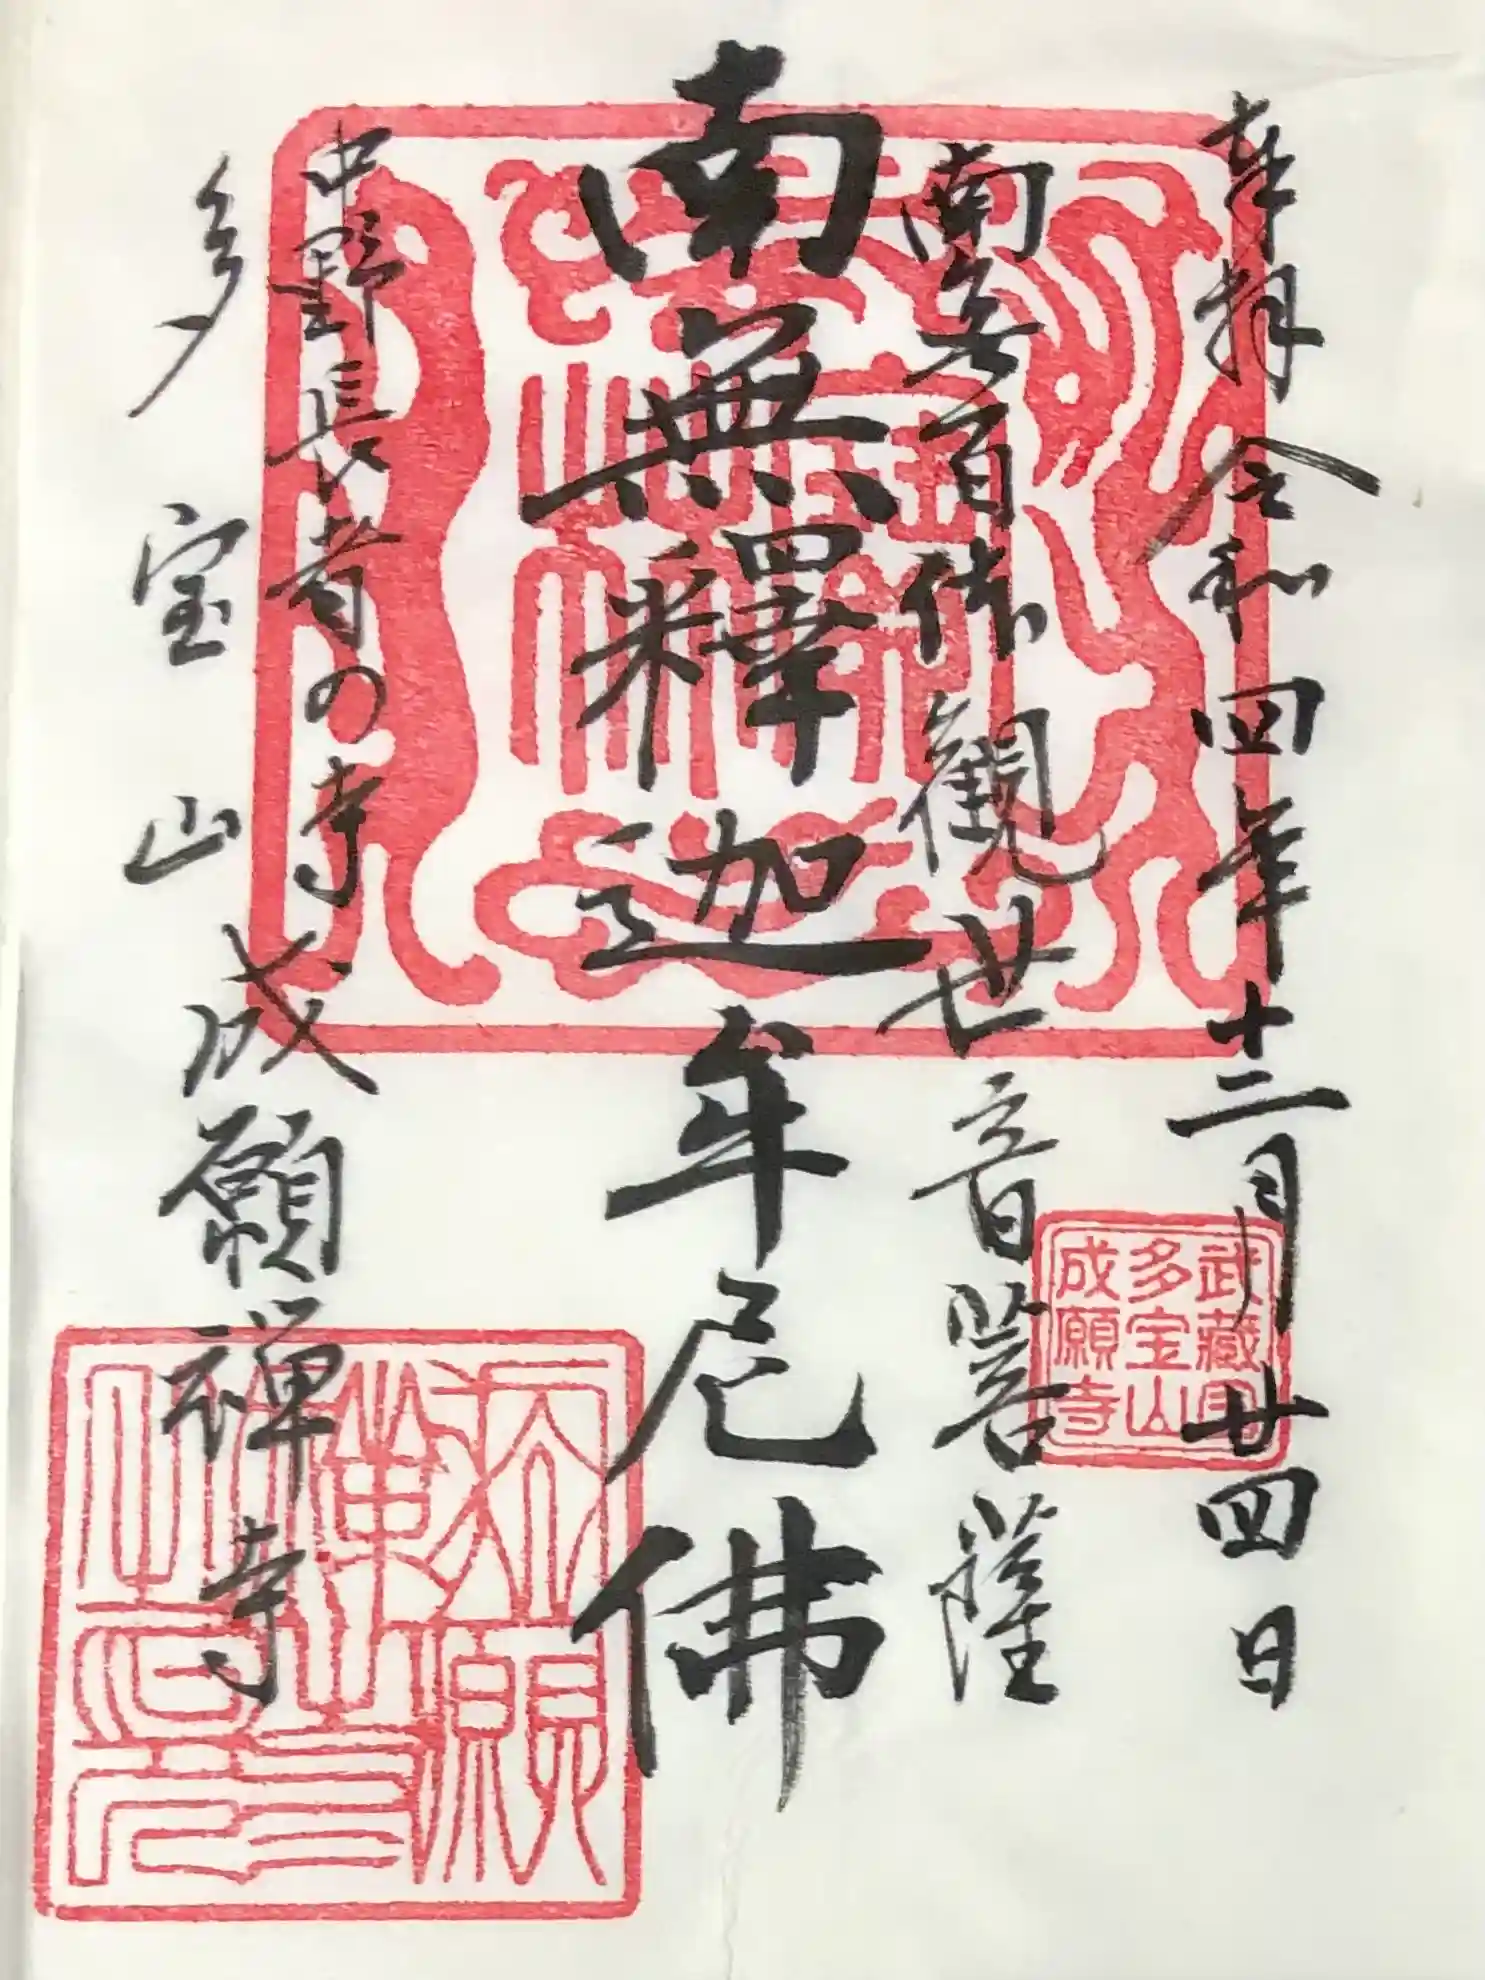 奉拝 令和四年十二月廿四日
南無百体觀世音菩薩
南無釋迦牟尼佛
中野長者の寺
多宝山成願禅寺
武蔵国
多宝山
成願寺